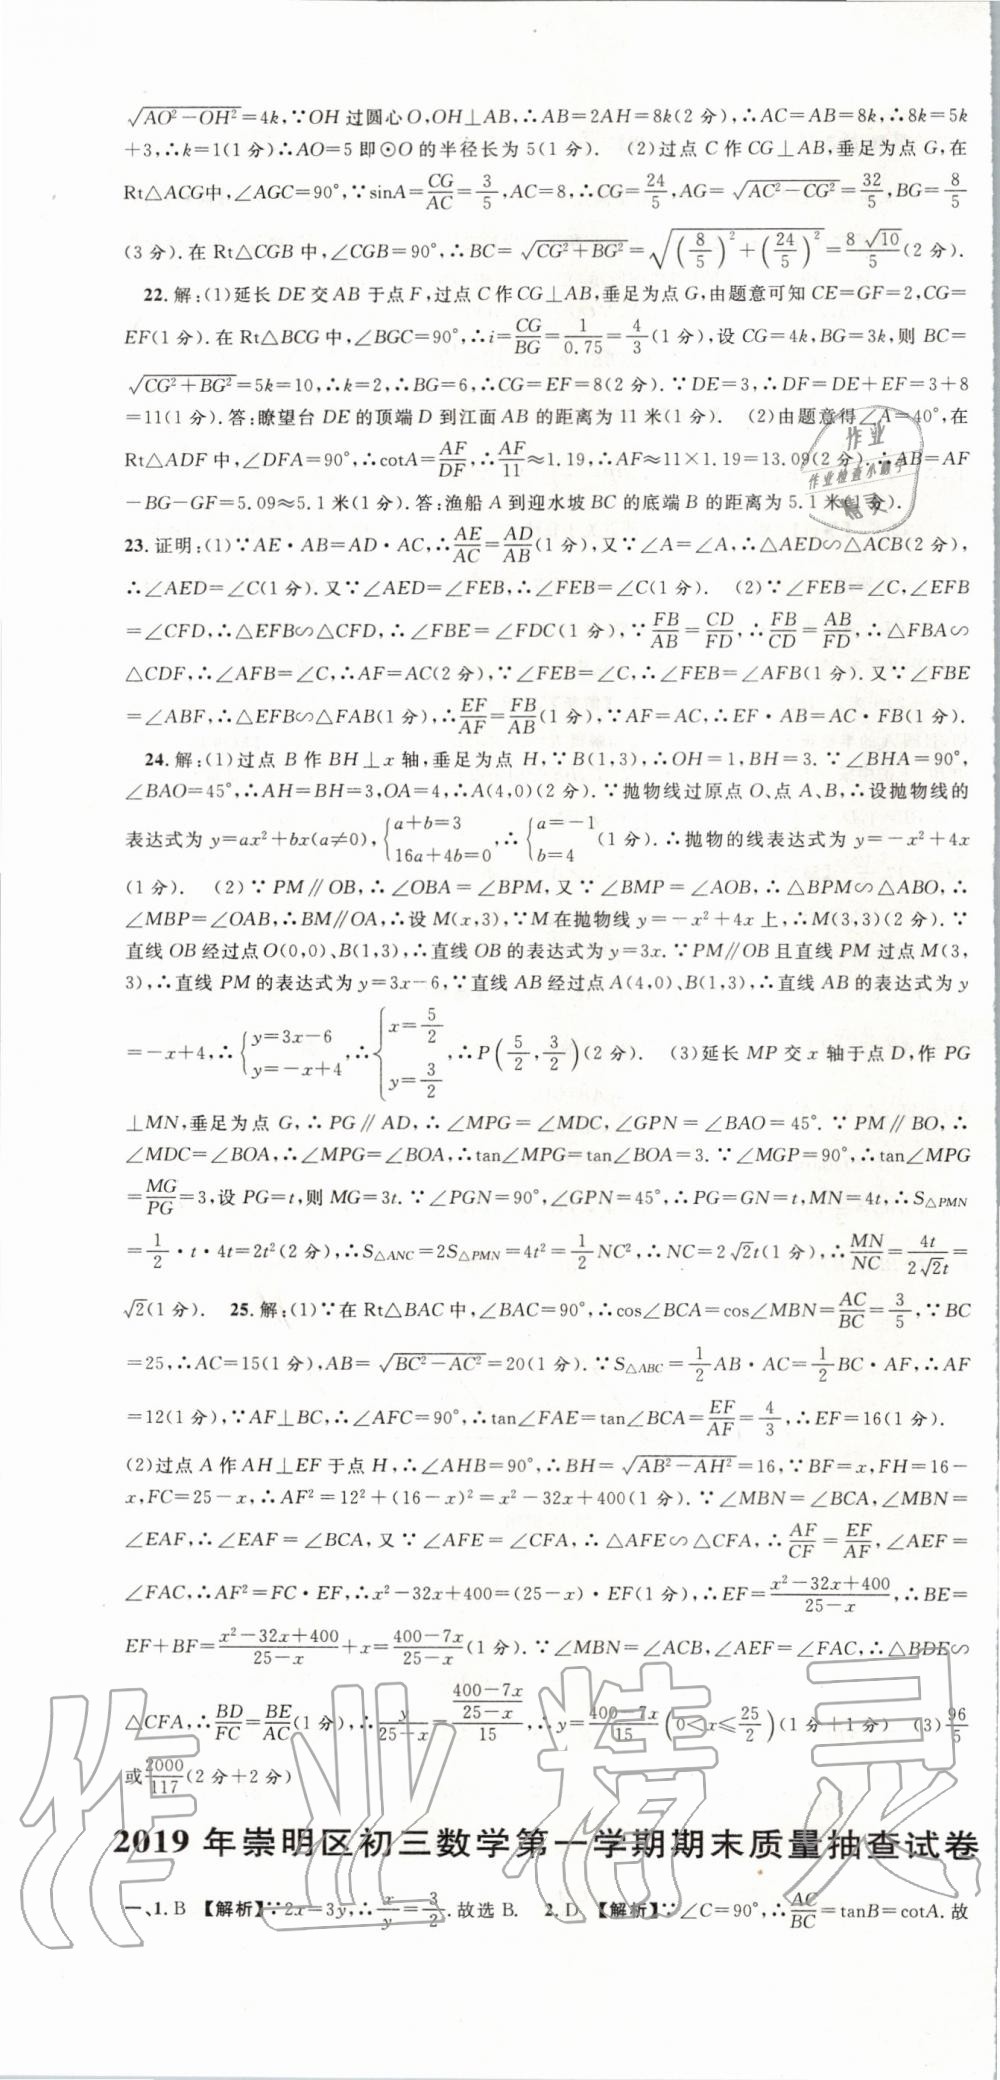 √(AO²－OH²)＝4k,∵OH 过圆心 O,OH⊥AB,∴AB＝2AH＝8k(2 分),∴AC＝AB＝8k,∴8k＝5k
＋3,∴k＝1(1 分)∴AO＝5 即⊙O 的半径长为 5(1 分). (2)过点 C 作 CG⊥AB,垂足为点 G,在
Rt△ACG中,∠AGC＝90°,∵sinA＝CG/AC＝3/5,AC＝8,∴CG＝24/5,AG＝√(AC²－CG²)＝32/5,BG＝8/5
(3 分).在 Rt△CGB 中,∠CGB＝90°,∴BC＝√(CG²＋BG²)＝√((8/5)²＋(24/5)²)＝8√10/5(2 分).
22.解:(1)延长 DE 交 AB 于点 F,过点 C 作 CG⊥AB,垂足为点 G,由题意可知 CE＝GF＝2,CG＝
EF(1 分).在 Rt△BCG 中,∠BGC＝90°,∴i＝CG/BG＝1/0.75＝4/3(1 分),设 CG＝4k,BG＝3k,则 BC＝
√(CG²＋BG²)＝5k＝10,∴k＝2,∴BG＝6,∴CG＝EF＝8(2 分).∵DE＝3,∴DF＝DE＋EF＝3＋8
＝11(1 分).答:瞭望台 DE 的顶端 D 到江面 AB 的距离为 11 米(1 分). (2)由题意得∠A＝40°,在
Rt△ADF 中,∠DFA＝90°,∴cotA＝AF/DF,∴AF/11≈1.19,∴AF≈11×1.19＝13.09(2 分).∴AB＝AF
－BG－GF＝5.09≈5.1 米(1 分).答:渔船 A 到迎水坡 BC 的底端 B 的距离为 5.1 米(1 分).
23.证明:(1)∵AE·AB＝AD·AC,∴AE/AC＝AD/AB(1 分),又∵∠A＝∠A,∴△AED∽△ACB(2 分),
∴∠AED＝∠C(1 分).又∵∠AED＝∠FEB,∴∠FEB＝∠C(1 分). (2)∵∠FEB＝∠C,∠EFB
＝∠CFD,∴△EFB∽△CFD,∴∠FBE＝∠FDC(1 分),∵FB/AB＝CD/FD,∴FB/CD＝AB/FD,∴△FBA∽
△CDF,∴∠AFB＝∠C,∴AF＝AC(2 分),∵∠FEB＝∠C,∴∠FEB＝∠AFB(1 分).又∵∠FBE
＝∠ABF,∴△EFB∽△FAB(1 分),∴EF/AF＝FB/AB(1 分).∵AF＝AC,∴EF·AB＝AC·FB(1 分).
24.解:(1)过点 B 作 BH⊥x 轴,垂足为点 H,∵B(1,3),∴OH＝1,BH＝3.∵∠BHA＝90°,
∠BAO＝45°,∴AH＝BH＝3,OA＝4,∴A(4,0)(2 分).∵抛物线过原点 O、点 A、B,∴设抛物线的
表达式为 y＝ax²＋bx(a≠0),{a＋b＝3 16a＋4b＝0,∴{a＝－1 b＝4(1 分).∴抛物的线表达式为 y＝－x²＋4x
(1 分). (2)∵PM∥OB,∴∠OBA＝∠BPM,又∵∠BMP＝∠AOB,∴△BPM∽△ABO,∴
∠MBP＝∠OAB,∴BM∥OA,∴设 M(x,3),∵M 在抛物线 y＝－x²＋4x 上,∴M(3,3)(2 分).∵
直线 OB 经过点 O(0,0)、B(1,3),∴直线 OB 的表达式为 y＝3x.∵PM∥OB 且直线 PM 过点 M(3,
3),∴直线 PM 的表达式为 y＝3x－6,∵直线 AB 经过点 A(4,0)、B(1,3),∴直线 AB 的表达式为 y
＝－x＋4,∴{y＝3x－6 y＝－x＋4,∴{x＝5/2 y＝3/2,∴P(5/2,3/2)(2 分). (3)延长 MP 交 x 轴于点 D,作 PG
⊥MN,垂足为点 G,∴PG∥AD,∴∠MPG＝∠MDC,∠GPN＝∠BAO＝45°.∵PM∥BO,∴
∠MDC＝∠BOA,∴∠MPG＝∠BOA,∴tan∠MPG＝tan∠BOA＝3.∵∠MGP＝90°,∴tan∠MPG
＝MG/PG＝3,设 PG＝t,则 MG＝3t.∵∠PGN＝90°,∠GPN＝45°,∴PG＝GN＝t,MN＝4t,∴S△PMN
＝1/2·t·4t＝2t²(2 分),∴S△ANC＝2S△PMN＝4t²＝1/2NC²,∴NC＝2√2t(1 分),∴MN/NC＝4t/2√2t＝
√2(1 分). 25.解:(1)∵在 Rt△BAC 中,∠BAC＝90°,∴cos∠BCA＝cos∠MBN＝AC/BC＝3/5,∵BC
＝25,∴AC＝15(1 分),AB＝√(BC²－AC²)＝20(1 分).∵S△ABC＝1/2AB·AC＝1/2BC·AF,∴AF
＝12(1 分),∵AF⊥BC,∴∠AFC＝90°,∴tan∠FAE＝tan∠BCA＝EF/AF＝4/3,∴EF＝16(1 分).
(2)过点 A 作 AH⊥EF 于点 H,∴∠AHB＝90°,∴BH＝√(AB²－AH²)＝16,∵BF＝x,FH＝16－
x,FC＝25－x,∴AF²＝12²＋(16－x)²＝x²－32x＋400(1 分).∵∠MBN＝∠BCA,∠MBN＝
∠EAF,∴∠EAF＝∠BCA,又∵∠AFE＝∠CFA,∴△AFE∽△CFA,∴AF/CF＝EF/AF,∠AEF＝
∠FAC,∴AF²＝FC·EF,∴x²－32x＋400＝(25－x)·EF(1 分),∴EF＝(x²－32x＋400)/(25－x),∴BE＝
EF＋BF＝(x²－32x＋400)/(25－x)＋x＝(400－7x)/(25－x)(1 分).∵∠MBN＝∠ACB,∠AEF＝∠FAC,∴△BDE∽
△CFA,∴BD/FC＝BE/AC(1 分),∴y/(25－x)＝((400－7x)/(25－x))/15,∴y＝(400－7x)/15(0＜x≤25/2)(1 分＋1 分) (3)96/5
或2000/117(2 分＋2 分)
2019 年崇明区初三数学第一学期期末质量抽查试卷
一、1. B 【解析】∵2x＝3y,∴x/y＝3/2.故选 B. 2. D 【解析】∵∠C＝90°,∴AC/BC＝tanB＝cotA.故
作业
作业检查小精灵
作业精灵